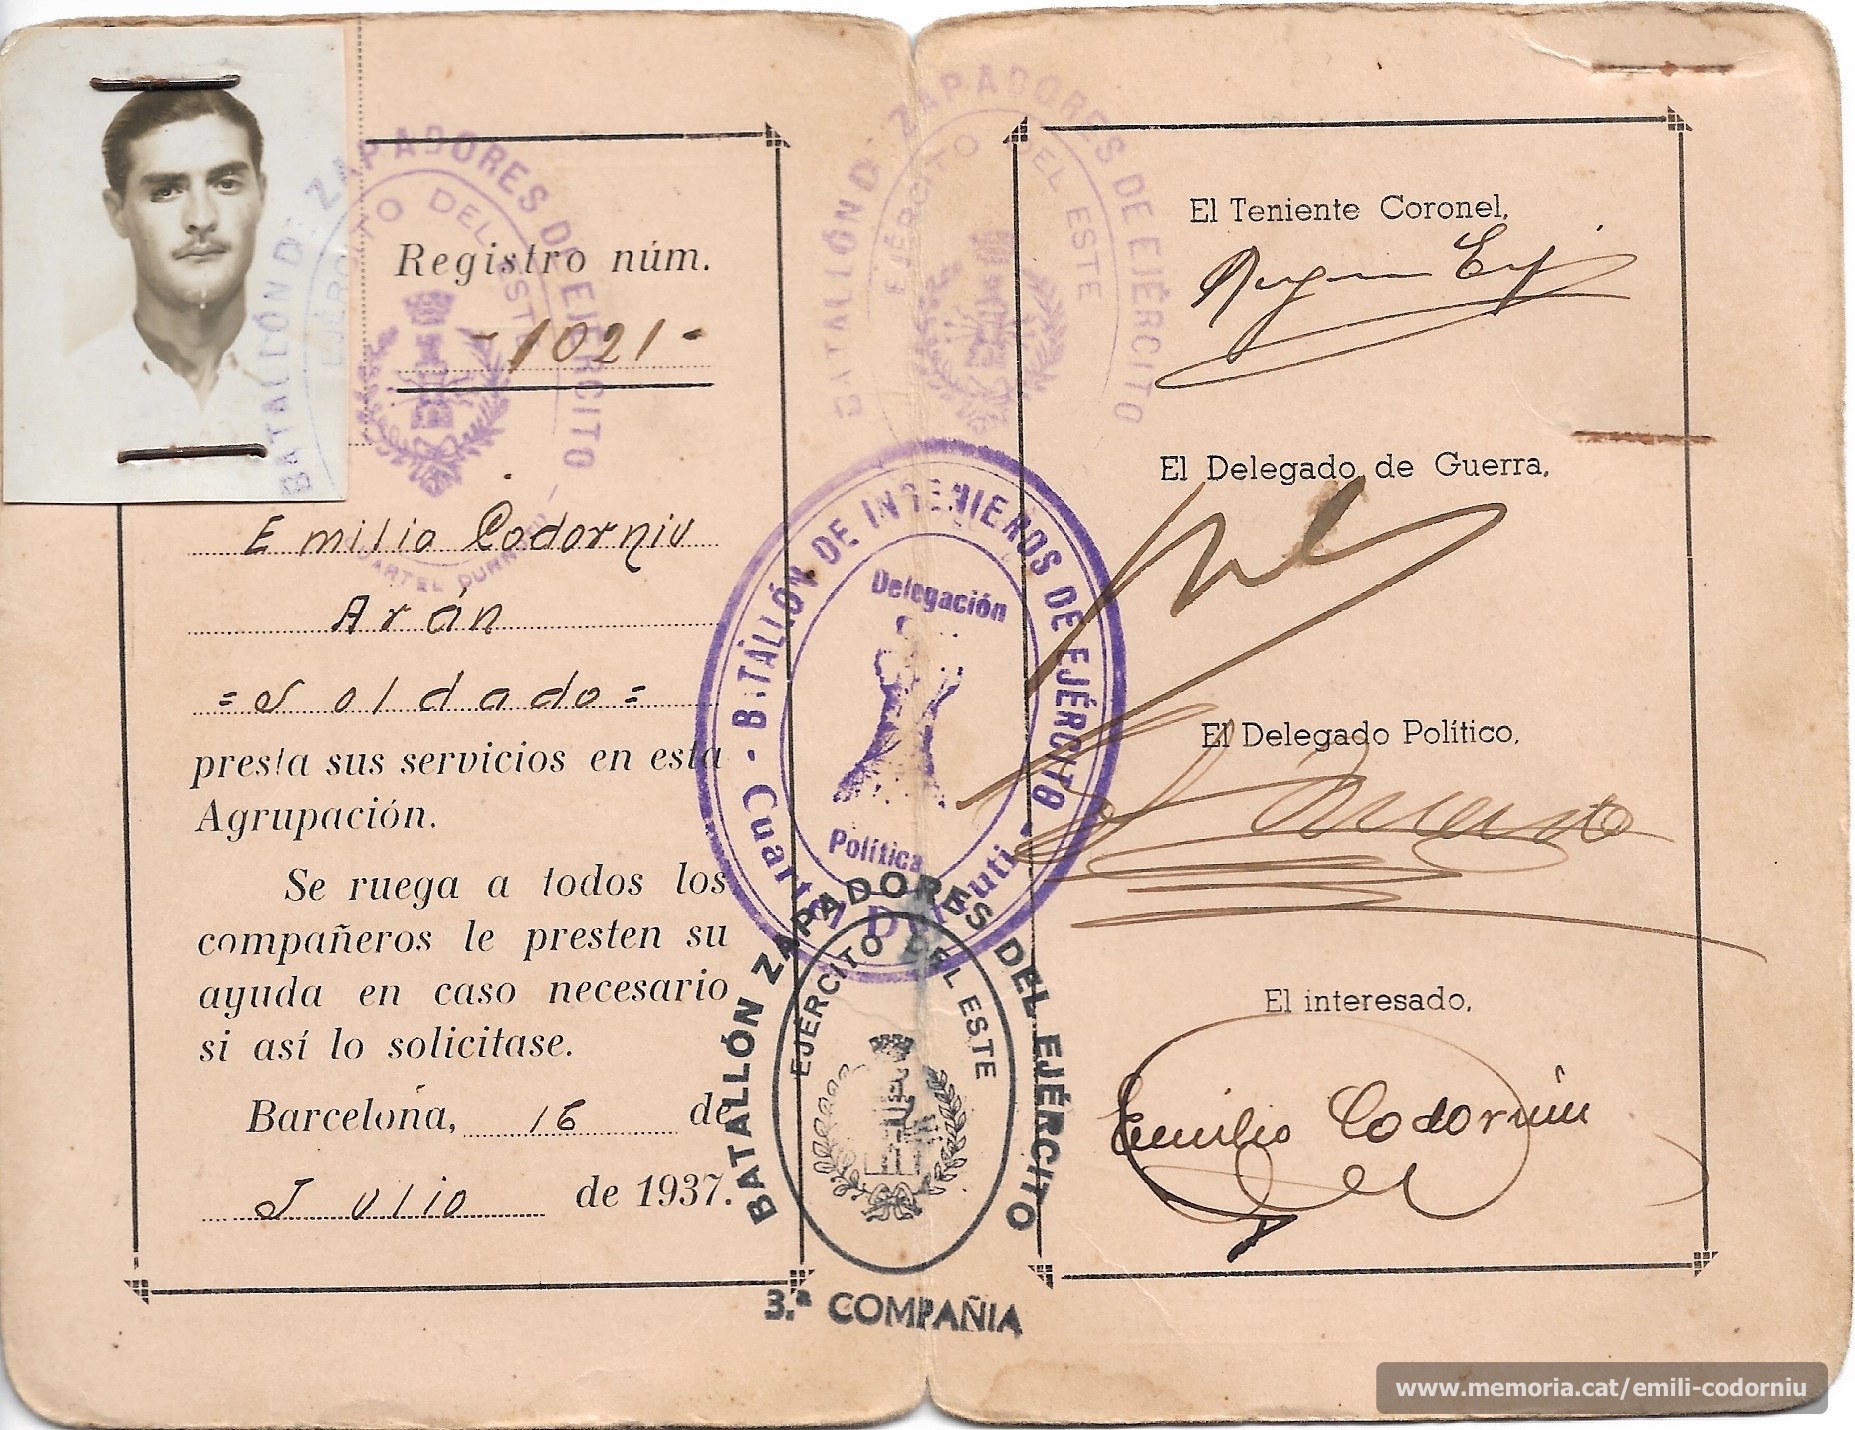 BATALLÓN D. ZAPADORES DE EJÉRCITO
EJÉRCITO DEL ESTE
Registro núm.
-1021-
Emilio Codorniu
Arán
=Soldado=
presta sus servicios en esta
Agrupación.
Se ruega a todos los
compañeros le presten su
ayuda en caso necesario
si así lo solicitase.
Barcelona, 16 de
Julio de 1937.
BATALLÓN D. ZAPADORES DE EJÉRCITO
EJÉRCITO DEL ESTE
BATALLÓN DE INGENIEROS DE EJÉRCITO
Delegación
Política
BATALLÓN ZAPADORES DEL EJÉRCITO
EJÉRCITO DEL ESTE
3.ª COMPAÑIA
El Teniente Coronel,
El Delegado de Guerra,
El Delegado Político,
El interesado,
Emilio Codorniu
www.memoria.cat/emili-codorniu